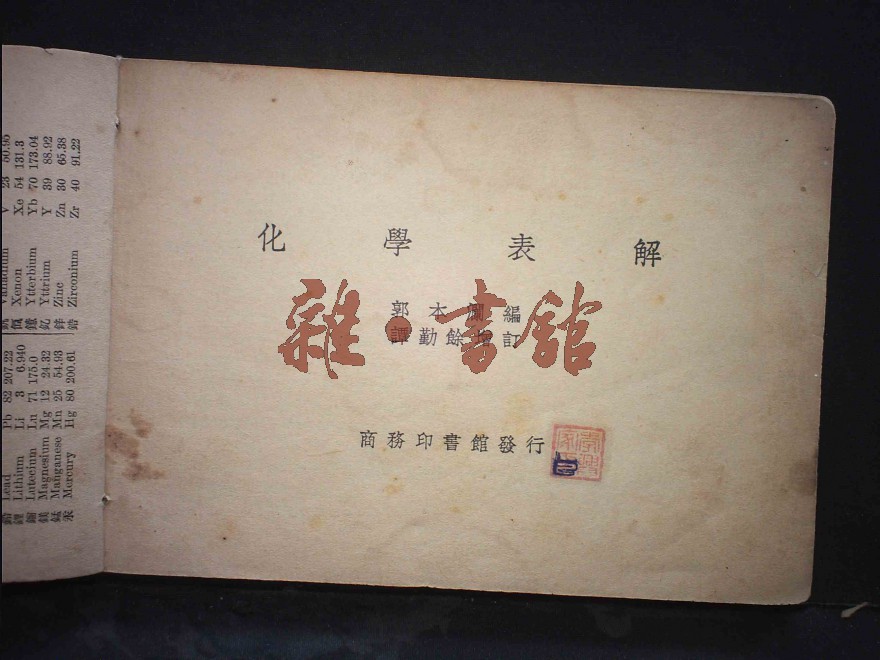 V 23 50.95
Xenon Xe 54 131.3
Ytterbium Yb 70 173.04
Yttrium Y 39 88.92
鋅 Zinc Zn 30 65.38
鋯 Zirconium Zr 40 91.22
鉛 Lead Pb 82 207.22
鋰 Lithium Li 3 6.940
Lutecium Lu 71 175.0
鎂 Magnesium Mg 12 24.32
錳 Manganese Mn 25 54.93
汞 Mercury Hg 80 200.61
化學表解
郭本 編
譚勤餘增訂
雜·書館
商務印書館發行